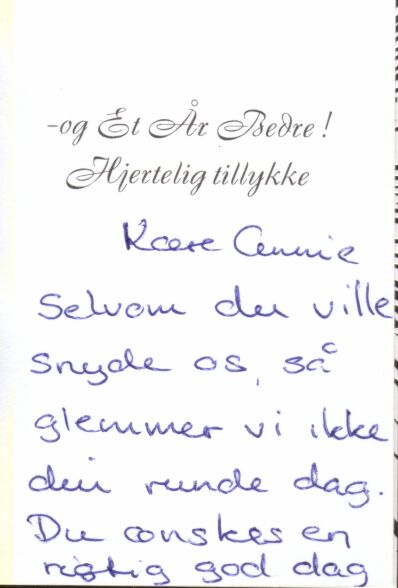 -og Et År Bedre!
Hjertelig tillykke
Kære Annie
Selvom du ville
snyde os, så
glemmer vi ikke
din runde dag.
Du ønskes en
rigtig god dag